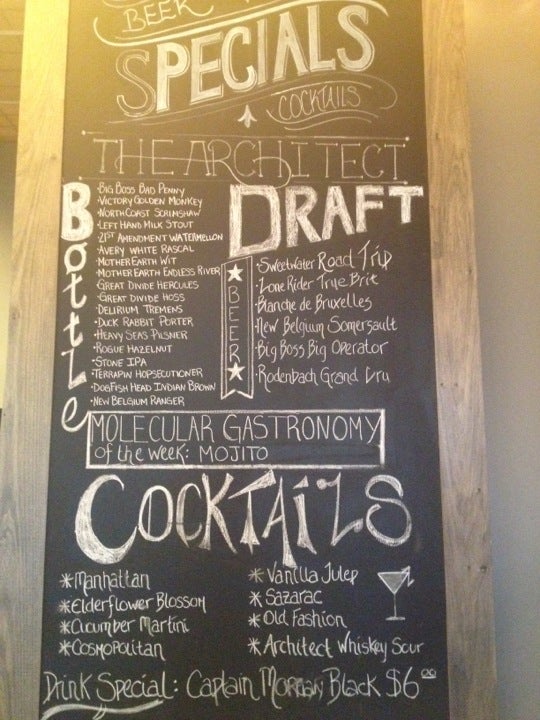 BEER
SPECIALS
COCKTAILS
THE ARCHITECT
Bottle
·BIG BOSS BAD PENNY
·VICTORY GOLDEN MONKEY
·NORTH COAST SCRIMSHAW
·LEFT HAND MILK STOUT
·21ST AMENDMENT WATERMELLON
·AVERY WHITE RASCAL
·MOTHER EARTH WIT
·MOTHER EARTH ENDLESS RIVER
·GREAT DIVIDE HERCULES
·GREAT DIVIDE HOSS
·DELIRIUM TREMENS
·DUCK RABBIT PORTER
·HEAVY SEAS PILSNER
·ROGUE HAZELNUT
·STONE IPA
·TERRAPIN HOPSECUTIONER
·DOGFISH HEAD INDIAN BROWN
·NEW BELGIUM RANGER
DRAFT
BEER
·Sweetwater Road Trip
·Lone Rider True Brit
·Blanche de Bruxelles
·New Belgium Somersault
·Big Boss Big Operator
·Rodenbach Grand Cru
MOLECULAR GASTRONOMY
of the week: MOJITO
COCKTAILS
*Manhattan
*Elderflower Blossom
*Cucumber Martini
*Cosmopolitan
*Vanilla Julep
*Sazarac
*Old Fashion
*Architect Whiskey Sour
Drink Special: Captain Morgan Black $6.00